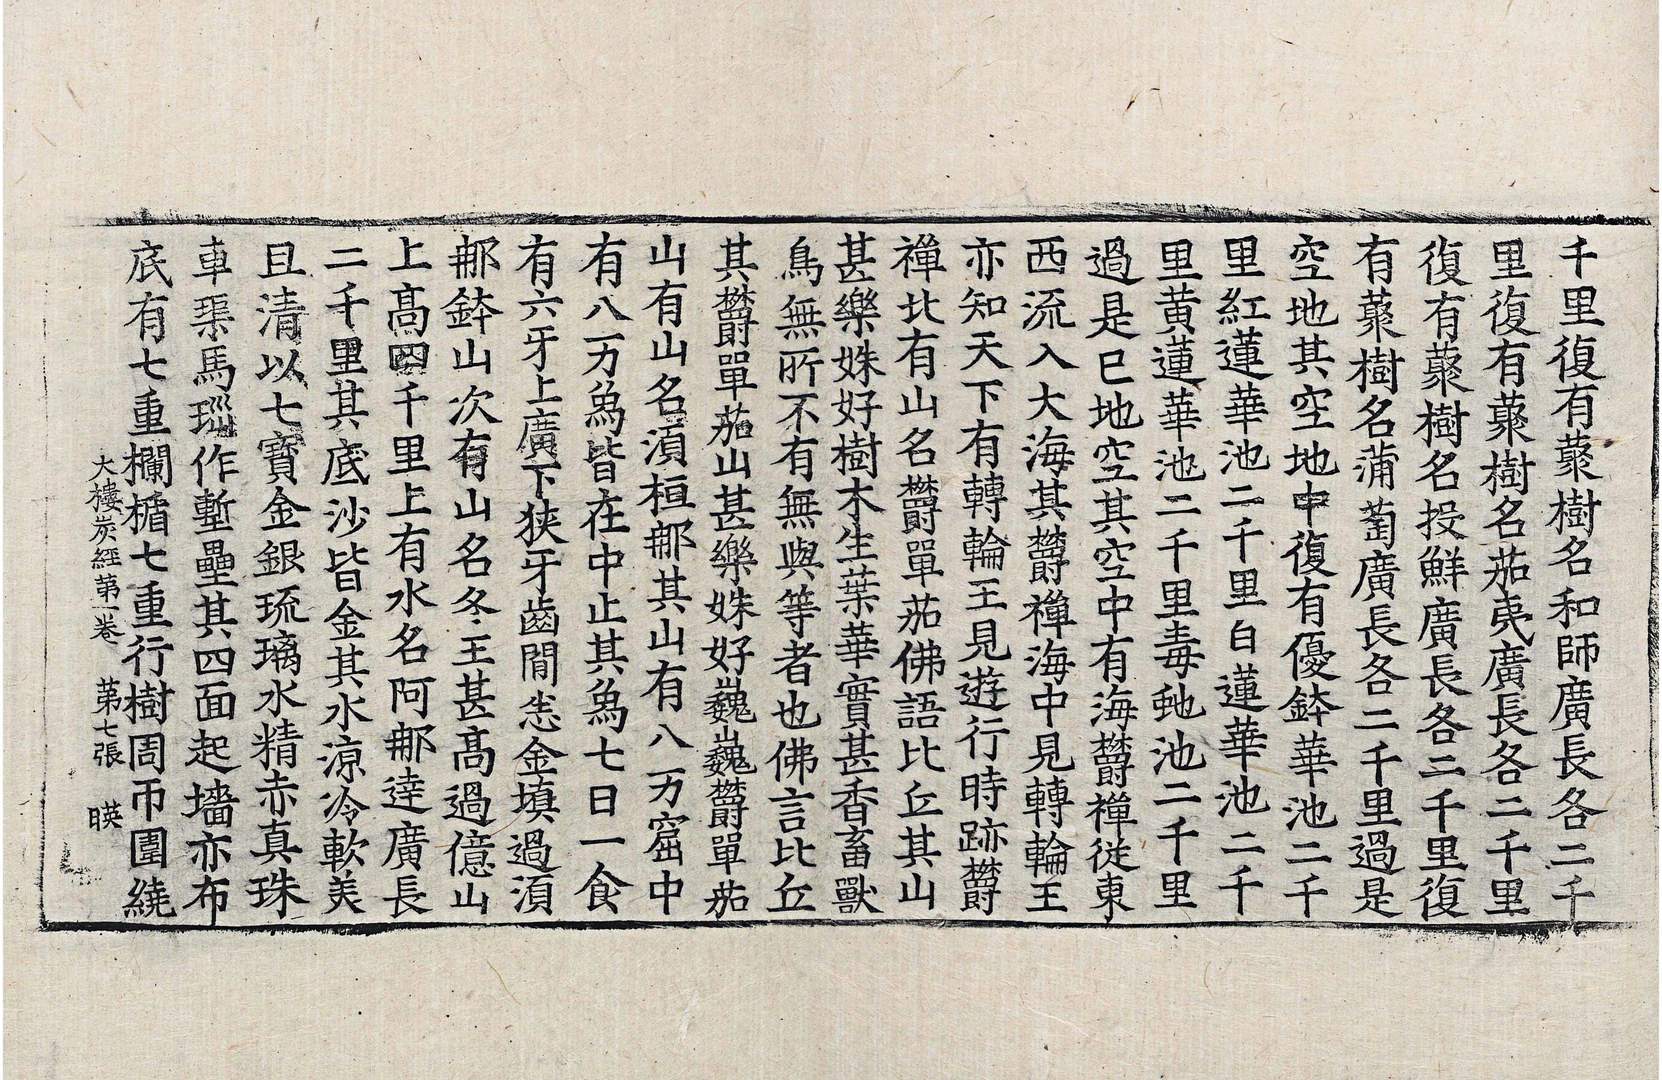 千里復有藂樹名和師廣長各二千
里復有藂樹名茄夷廣長各二千里
復有藂樹名投鮮廣長各二千里復
有藂樹名蒲萄廣長各二千里過是
空地其空地中復有優鉢華池二千
里紅蓮華池二千里白蓮華池二千
里黃蓮華池二千里毒虵池二千里
過是已地空其空中有海欝禪從東
西流入大海其欝禪海中見轉輪王
亦知天下有轉輪王見遊行時跡欝
禪比有山名欝單茄佛語比丘其山
甚樂姝好樹木生葉華實甚香畜獸
鳥無所不有無與等者也佛言比丘
其欝單茄山甚樂姝好巍巍欝單茄
山有山名湏桓郍其山有八万窟中
有八万爲皆在中止其爲七日一食
有六牙上廣下狹牙齒閒恙金填過湏
郍鉢山次有山名冬王甚髙過億山
上髙四千里上有水名阿郍達廣長
二千里其底沙皆金其水凉冷軟美
且清以七寶金銀琉璃水精赤真珠
車𤦲馬瑙作壍壘其四面起墻亦布
底有七重欄楯七重行樹周帀圍繞
大樓炭經第一卷 第七張 暎